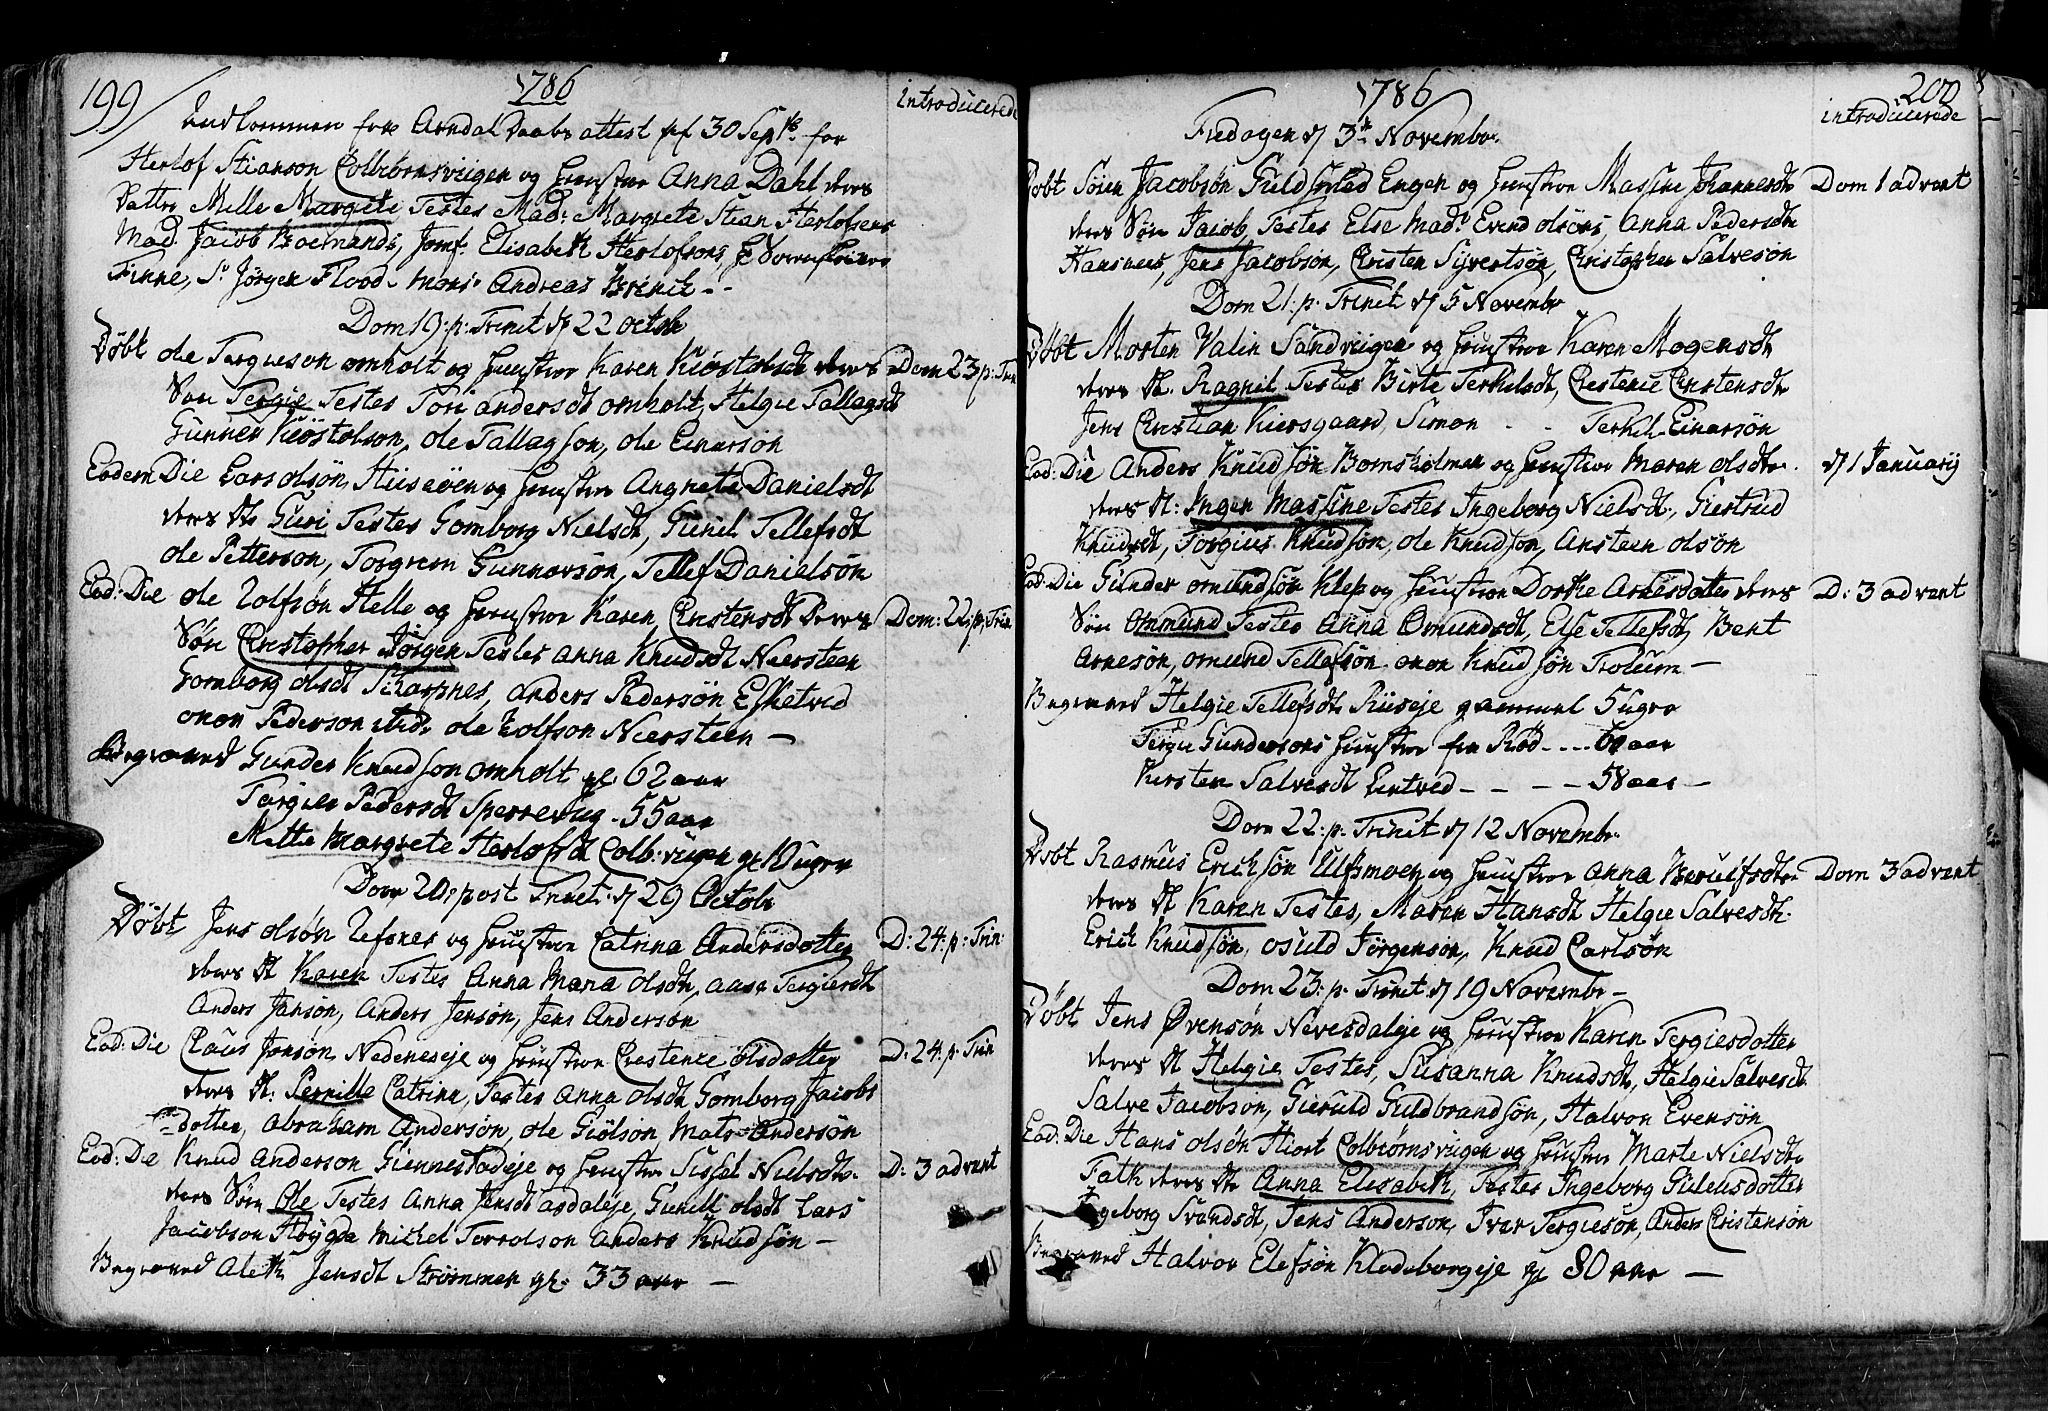 199
1786
introducerede
Indkommen fra Arndal Daabs attest pf 30 Septbr for
Herlof Stianson Colbiørnsviigen og Hustroe Anna Dahl deres
Datter Mette Margrete Testes Mad: Margrete Stian Herlofsens
Mad. Jacob Boemands, Jomf. Elisabeth Herlofsons,
Finne, Sr Jørgen Flood. Mons: Andreas Brinck - -
Dom 19: p: Trinet d 22 octob
Døbt Ole Tergieson omholt og Hustroe Karen Kiøstolsdt deres Dom 23 p: Trin
Søn Tergie Testes Tori andersdt omholt, Helgie Tallagsdt
Gunner Kiøstolson, ole Tallagsøn, ole Einersøn
Eodem Die Lars olsøn Huseøen og Hustroe Angnete Danielsdt
deres dt Guri Testes Gomborg Nielsdt, Gunil Tellefsdt
ole Petterson, Torgrem Gunnersøn, Tellef Danielsøn
Eod: Die ole Rolfsøn Helle og Hustroe Karen Christensdt deres Dom: 22 p: Trin
Søn Christopher Jørgen Testes anna Knudsdt Neersteen
Gomborg olsdt Skarpnes, anders Pedersøn Esketvid
onon Pederson ibid: ole Rolfson Niersteen -
Begraved Gunder Knudson omholt gl. 62 aar
Torgier Pedersdt Sperrevig - 55 aar
Mette Margrete Herlofsd Colb:viigen gl 10 uger
Dom 20: post Trinet: d 29 Octobr
Døbt Jens olsøn Refsnes og Hustroe Catrina Andersdotter D: 24: p: Trin:
deres dt Karen Testes Anna Maria olsdt, aase Tergiesdt
Anders Jansøn, Anders Jensøn, Jens Andersøn
Eod: Die Claus Jonsøn Nedeneseje og Hustroe Crestence olsdotter D: 24: p: Trin
deres dt: Pernille Catrina, Testes Anna olsdt Gomborg Jacobs
dotter, Abraham Andersøn, ole Giølson Mats Andersøn
Eod: Die Knud Anderson Giennestadeje og Hustroe Sissel Nielsdtr. D: 3 advent
deres Søn Ole Testes Anna Jensdt asdaleje, Gunild olsdt Lars
Jacobson Høygde Michel Torrolson anders Knudsøn -
Begraved Aleth Jensdt Strømmen gl: 33 aar -
1786
200
introducerede
Fredagen d 3die Novembr.
Døbt Søren Jacobsøn Guldsmed Engen og Hustroe Massine Johannesdt Dom 1 advent
deres Søn Jacob Testes Else Mad: Evind olsøns, Anna Pedersdt
Hansness, Jens Jacobsøn, Christen Syvertsøn, Christopher Salveson
Dom 21: p: Trinit d 5 Novembr
Døbt Morten Valin Sandviigen og Hustroe Karen Mogensdt
deres dt. Ragnil Testes Birte Terkelsdt, Crestence Cristensdt
Jens Christian Kiersgaard, Simon - - Terkil Einersøn
Eod: Die Anders Knudsøn Bornholmen og Hustroe Maren olsdtr. d 1 Januarij
deres dt: Inger Massine Testes Ingeborg Nielsdt, Giertrud
Knudsdt, Torgius Knudsøn, ole Knudson, Ansteen olsøn
Eod: Die Gunder omundsøn Klep og Hustroe Dorthe Arnesdotter deres D: 3 advent
Søn Ommund Testes Anna Omundsdt, Else Tellefsdt, Bent
Arnesøn, omund Tellefsøn onon Knudsøn Troeum -
Begraved Helgie Tellefsdt Riiseje gammel 5 ugre
Tergie Gundersons Hustroe fra Rød - - - 60 aar
Kirsten Salvesdt Lintved - - - - 58 aar -
Dom 22: p: Trinet d 12 Novembr.
Døbt Rasmus Ericksøn Ulfsmoen og Hustroe Anna Berulfsdtr Dom 3 advent
deres dt Karen Testes, Maren Hansdt Helgie Salvesdt.
Erick Knudsøn, osuld Jørgensøn, Knud Carlsøn
Dom 23: p: Trinet d 19 Novembr -
Døbt Jens Øvensøn Nevesdaleje og Hustroe Karen Tergiesdotter
deres dt Helgie, Testes, Susanna Knudsdt, Helgie Salvesdt
Salve Jacobsøn, Gieruld Guldbrandsøn, Halvor Evensøn
Eod: Die Hans olsøn Hiort Colbiørnsviigen og Hustroe Marte Nielsdtr
Falk deres dt Anna Elisabeth, Testes Ingeborg Gulleksdotter
Ingeborg Svendsdt, Jens Anderson, Iver Tergieson, Anders Cristensøn
Begraved Halvor Elefsøn Klodeborgeje gl 80 aar -